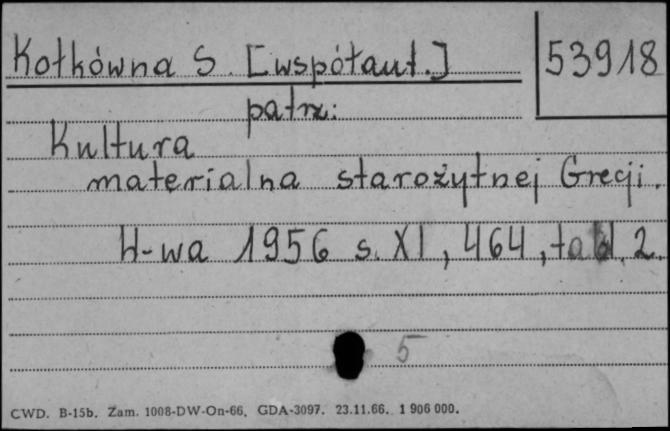 Kotkówna S. [współaut.]
53918
patrz:
Kultura
materialna starożytnej Grecji.
W-wa 1956 s. XI, 464, tabl. 2.
5
CWD. B-15b. Zam. 1008-DW-On-66. GDA-3097. 23.11.66. 1 906 000.